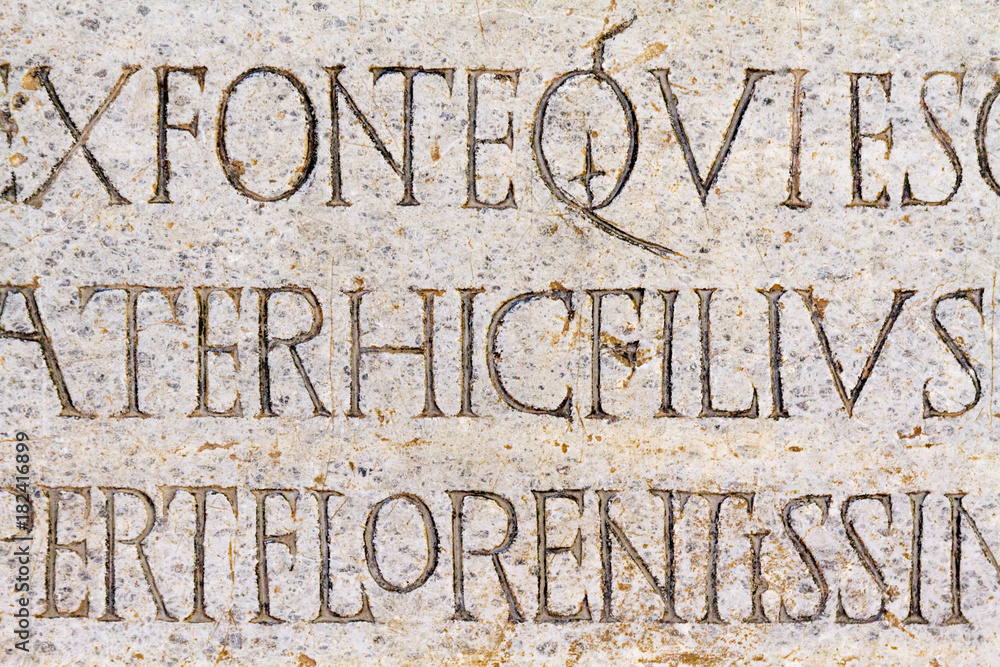 EXFONTEQVIESC
ATERHICFILIVS
ERTFLORENTISSIN
Adobe Stock | #182416899